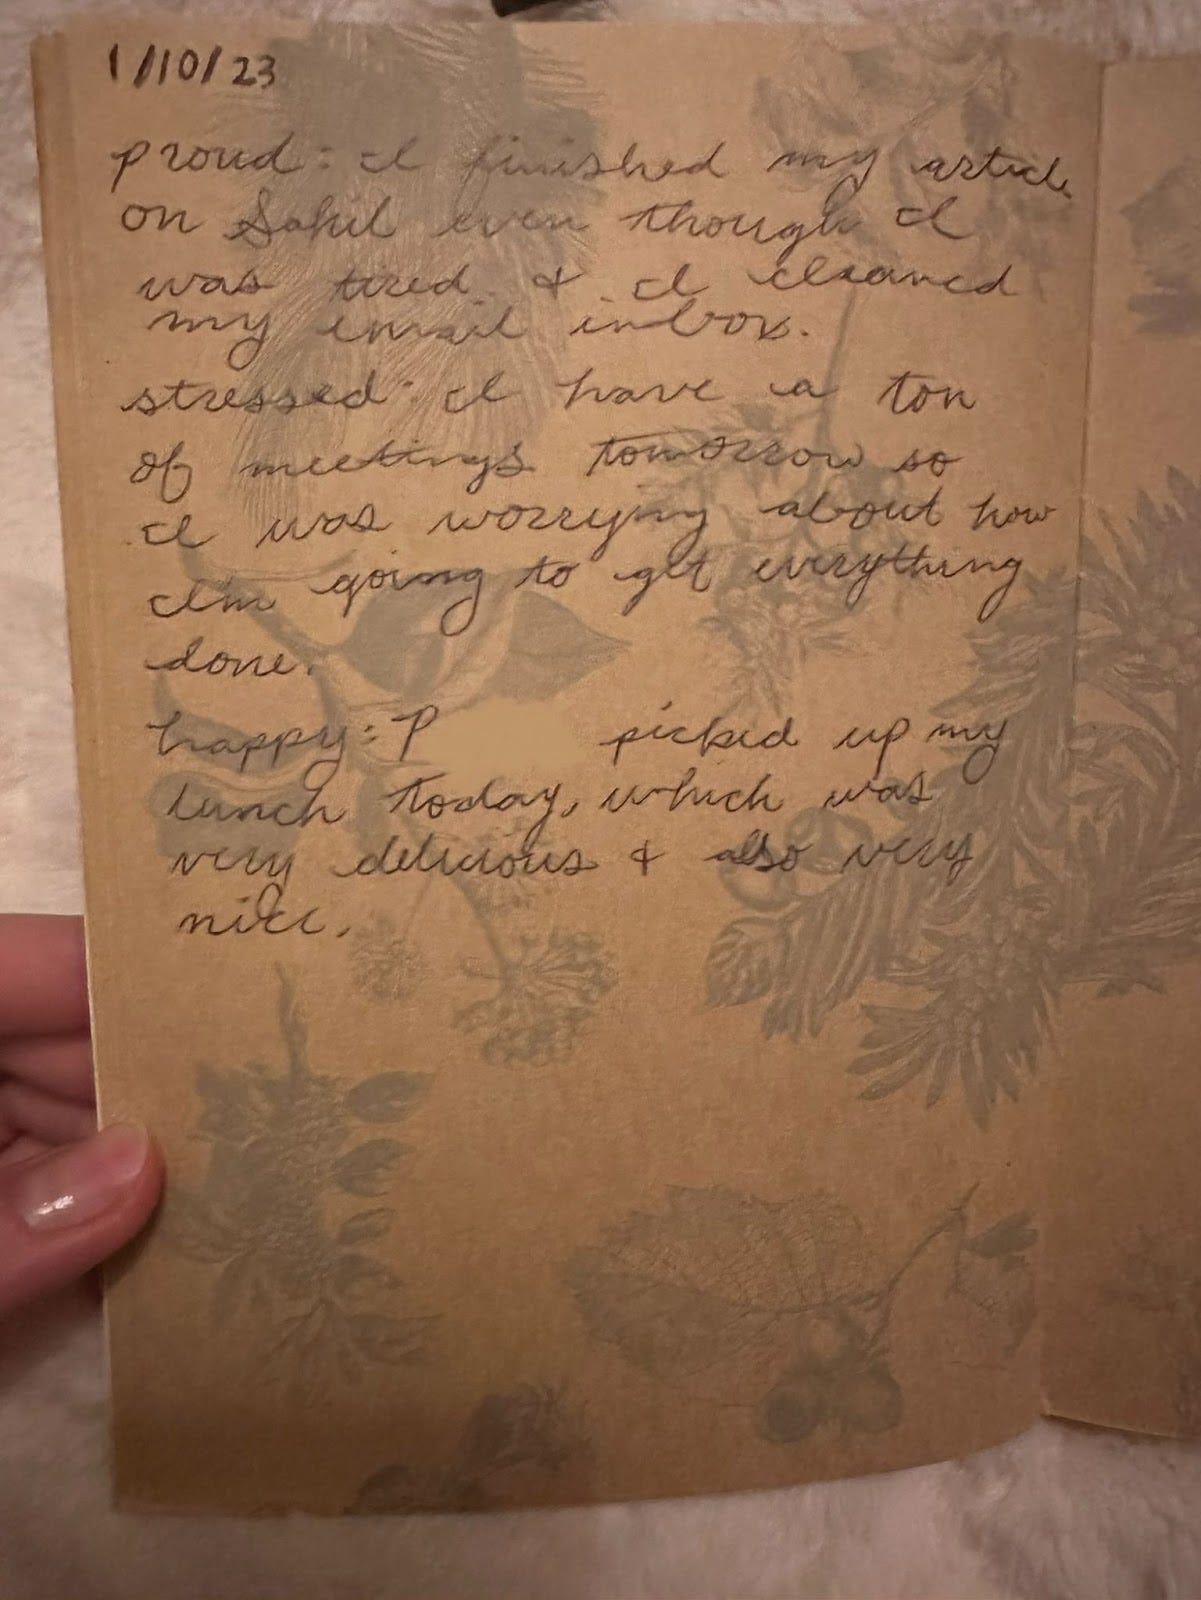 1/10/23
proud: I finished my article
on Sahil even though I
was tired & I cleaned
my email inbox.
stressed: I have a ton
of meetings tomorrow so
I was worrying about how
I'm going to get everything
done.
happy: P picked up my
lunch today, which was
very delicious & also very
nice.